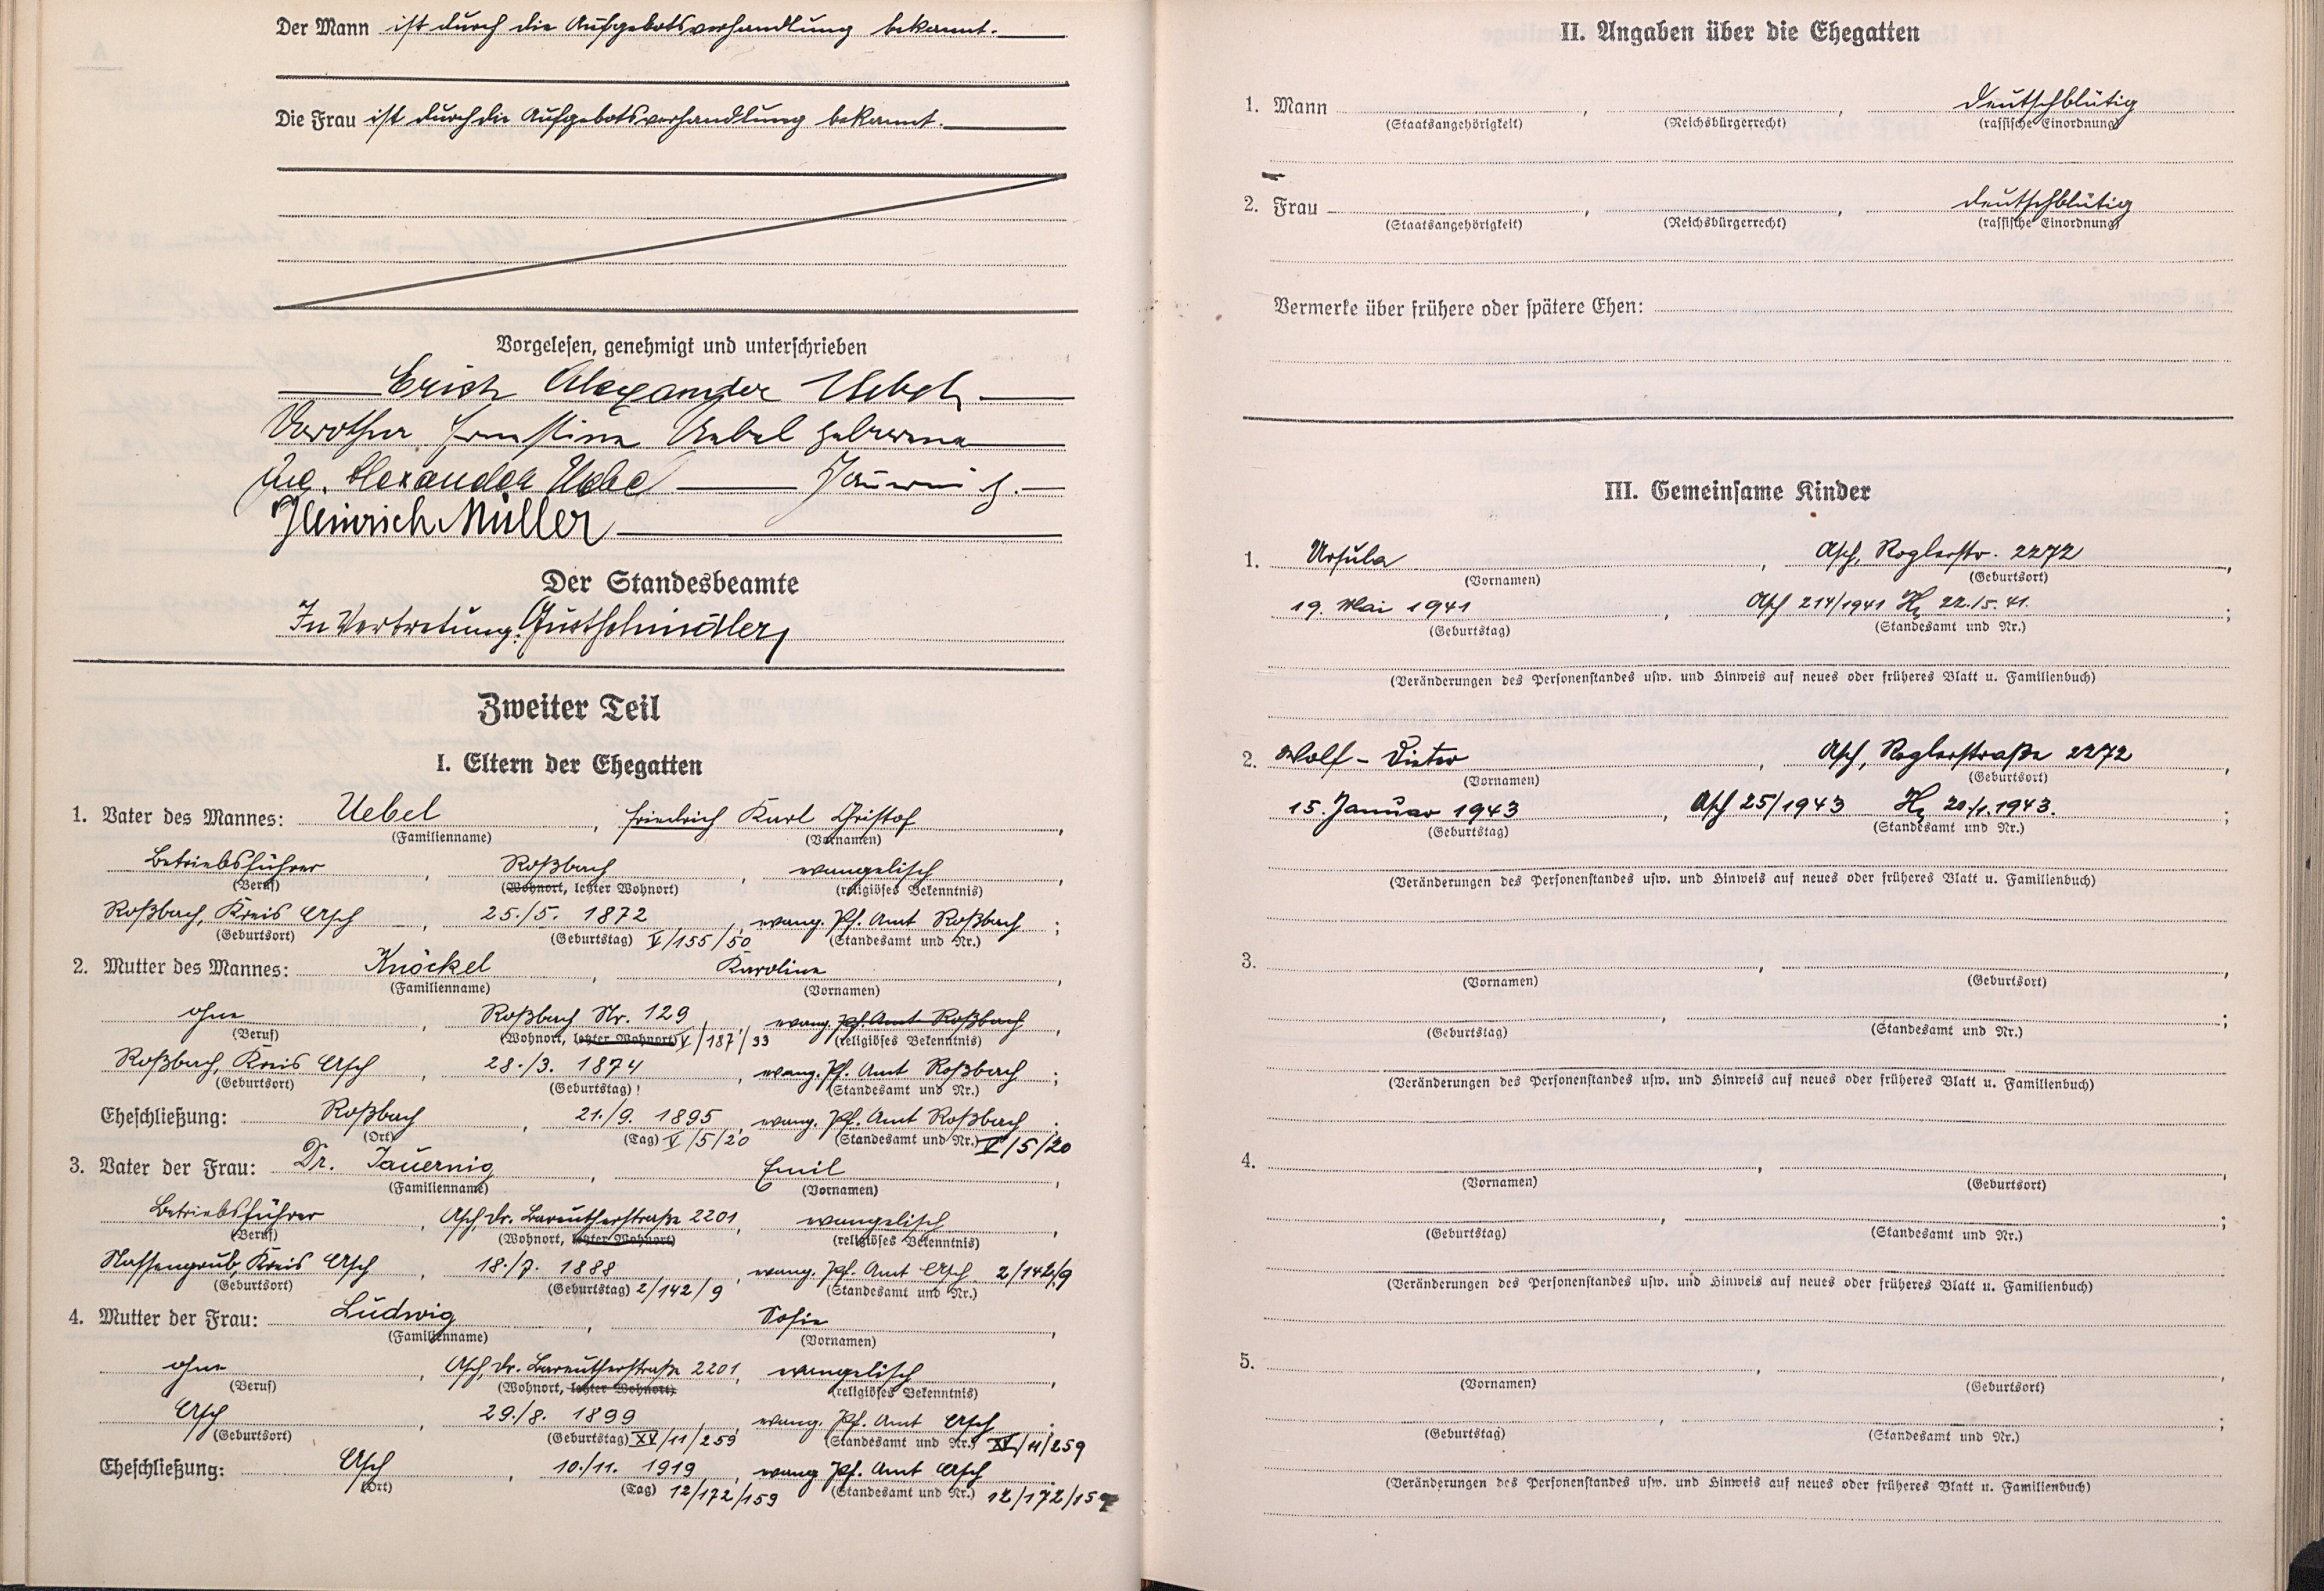 Der Mann ist durch die Aufgebotsverhandlung bekannt.
Die Frau ist durch die Aufgebotsverhandlung bekannt.
Vorgelesen, genehmigt und unterschrieben
Erich Alexander Uebel
Dorothea Ernestine Uebel geborene
Ing. Alexander Uebel Jäuernig.
Heinrich Müller
Der Standesbeamte
In Vertretung:
Zweiter Teil
I. Eltern der Ehegatten
1. Vater des Mannes: Uebel, Friedrich Karl Christof,
(Familienname) (Vornamen)
Betriebsführer, Roßbach, evangelisch,
(Beruf) (Wohnort, letzter Wohnort) (religiöses Bekenntnis)
Roßbach, Kreis Asch, 25./5. 1872, evang. Pf. Amt Roßbach;
(Geburtsort) (Geburtstag) V/155/50 (Standesamt und Nr.)
2. Mutter des Mannes: Knöckel, Karoline,
(Familienname) (Vornamen)
ohne, Roßbach Nr. 129, evang. Pf. Amt Roßbach,
(Beruf) (Wohnort, letzter Wohnort) V/187/33 (religiöses Bekenntnis)
Roßbach, Kreis Asch, 28./3. 1874, evang. Pf. Amt Roßbach;
(Geburtsort) (Geburtstag) (Standesamt und Nr.)
Eheschließung: Roßbach, 21./9. 1895, evang. Pf. Amt Roßbach;
(Ort) (Tag) V/5/20 (Standesamt und Nr.) V/5/20
3. Vater der Frau: Dr. Jauernig, Emil,
(Familienname) (Vornamen)
Betriebsführer, Asch, Dr. Bareutherstraße 2201, evangelisch,
(Beruf) (Wohnort, letzter Wohnort) (religiöses Bekenntnis)
Nassengrub, Kreis Asch, 18./7. 1888, evang. Pf. Amt Asch 2/142/9
(Geburtsort) (Geburtstag) 2/142/9 (Standesamt und Nr.)
4. Mutter der Frau: Ludwig, Sofie,
(Familienname) (Vornamen)
ohne, Asch, Dr. Bareutherstraße 2201, evangelisch,
(Beruf) (Wohnort, letzter Wohnort) (religiöses Bekenntnis)
Asch, 29./8. 1899, evang. Pf. Amt Asch;
(Geburtsort) (Geburtstag) XV/11/259 (Standesamt und Nr.) XV/11/259
Eheschließung: Asch, 10./11. 1919, evang Pf. Amt Asch.
(Ort) (Tag) 12/172/159 (Standesamt und Nr.) 12/172/159
II. Angaben über die Ehegatten
1. Mann, , deutschblütig
(Staatsangehörigkeit) (Reichsbürgerrecht) (rassische Einordnung)
2. Frau, , deutschblütig
(Staatsangehörigkeit) (Reichsbürgerrecht) (rassische Einordnung)
Vermerke über frühere oder spätere Ehen:
III. Gemeinsame Kinder
1. Ursula, Asch, Roglerstr. 2272,
(Vornamen) (Geburtsort)
19. Mai 1941, Asch 214/1941 22./5. 41.;
(Geburtstag) (Standesamt und Nr.)
(Veränderungen des Personenstandes usw. und Hinweis auf neues oder früheres Blatt u. Familienbuch)
2. Wolf-Dieter, Asch, Roglerstraße 2272,
(Vornamen) (Geburtsort)
15. Januar 1943, Asch 25/1943 20./1. 1943.;
(Geburtstag) (Standesamt und Nr.)
(Veränderungen des Personenstandes usw. und Hinweis auf neues oder früheres Blatt u. Familienbuch)
3. , ,
(Vornamen) (Geburtsort)
, ;
(Geburtstag) (Standesamt und Nr.)
(Veränderungen des Personenstandes usw. und Hinweis auf neues oder früheres Blatt u. Familienbuch)
4. , ,
(Vornamen) (Geburtsort)
, ;
(Geburtstag) (Standesamt und Nr.)
(Veränderungen des Personenstandes usw. und Hinweis auf neues oder früheres Blatt u. Familienbuch)
5. , ,
(Vornamen) (Geburtsort)
, ;
(Geburtstag) (Standesamt und Nr.)
(Veränderungen des Personenstandes usw. und Hinweis auf neues oder früheres Blatt u. Familienbuch)